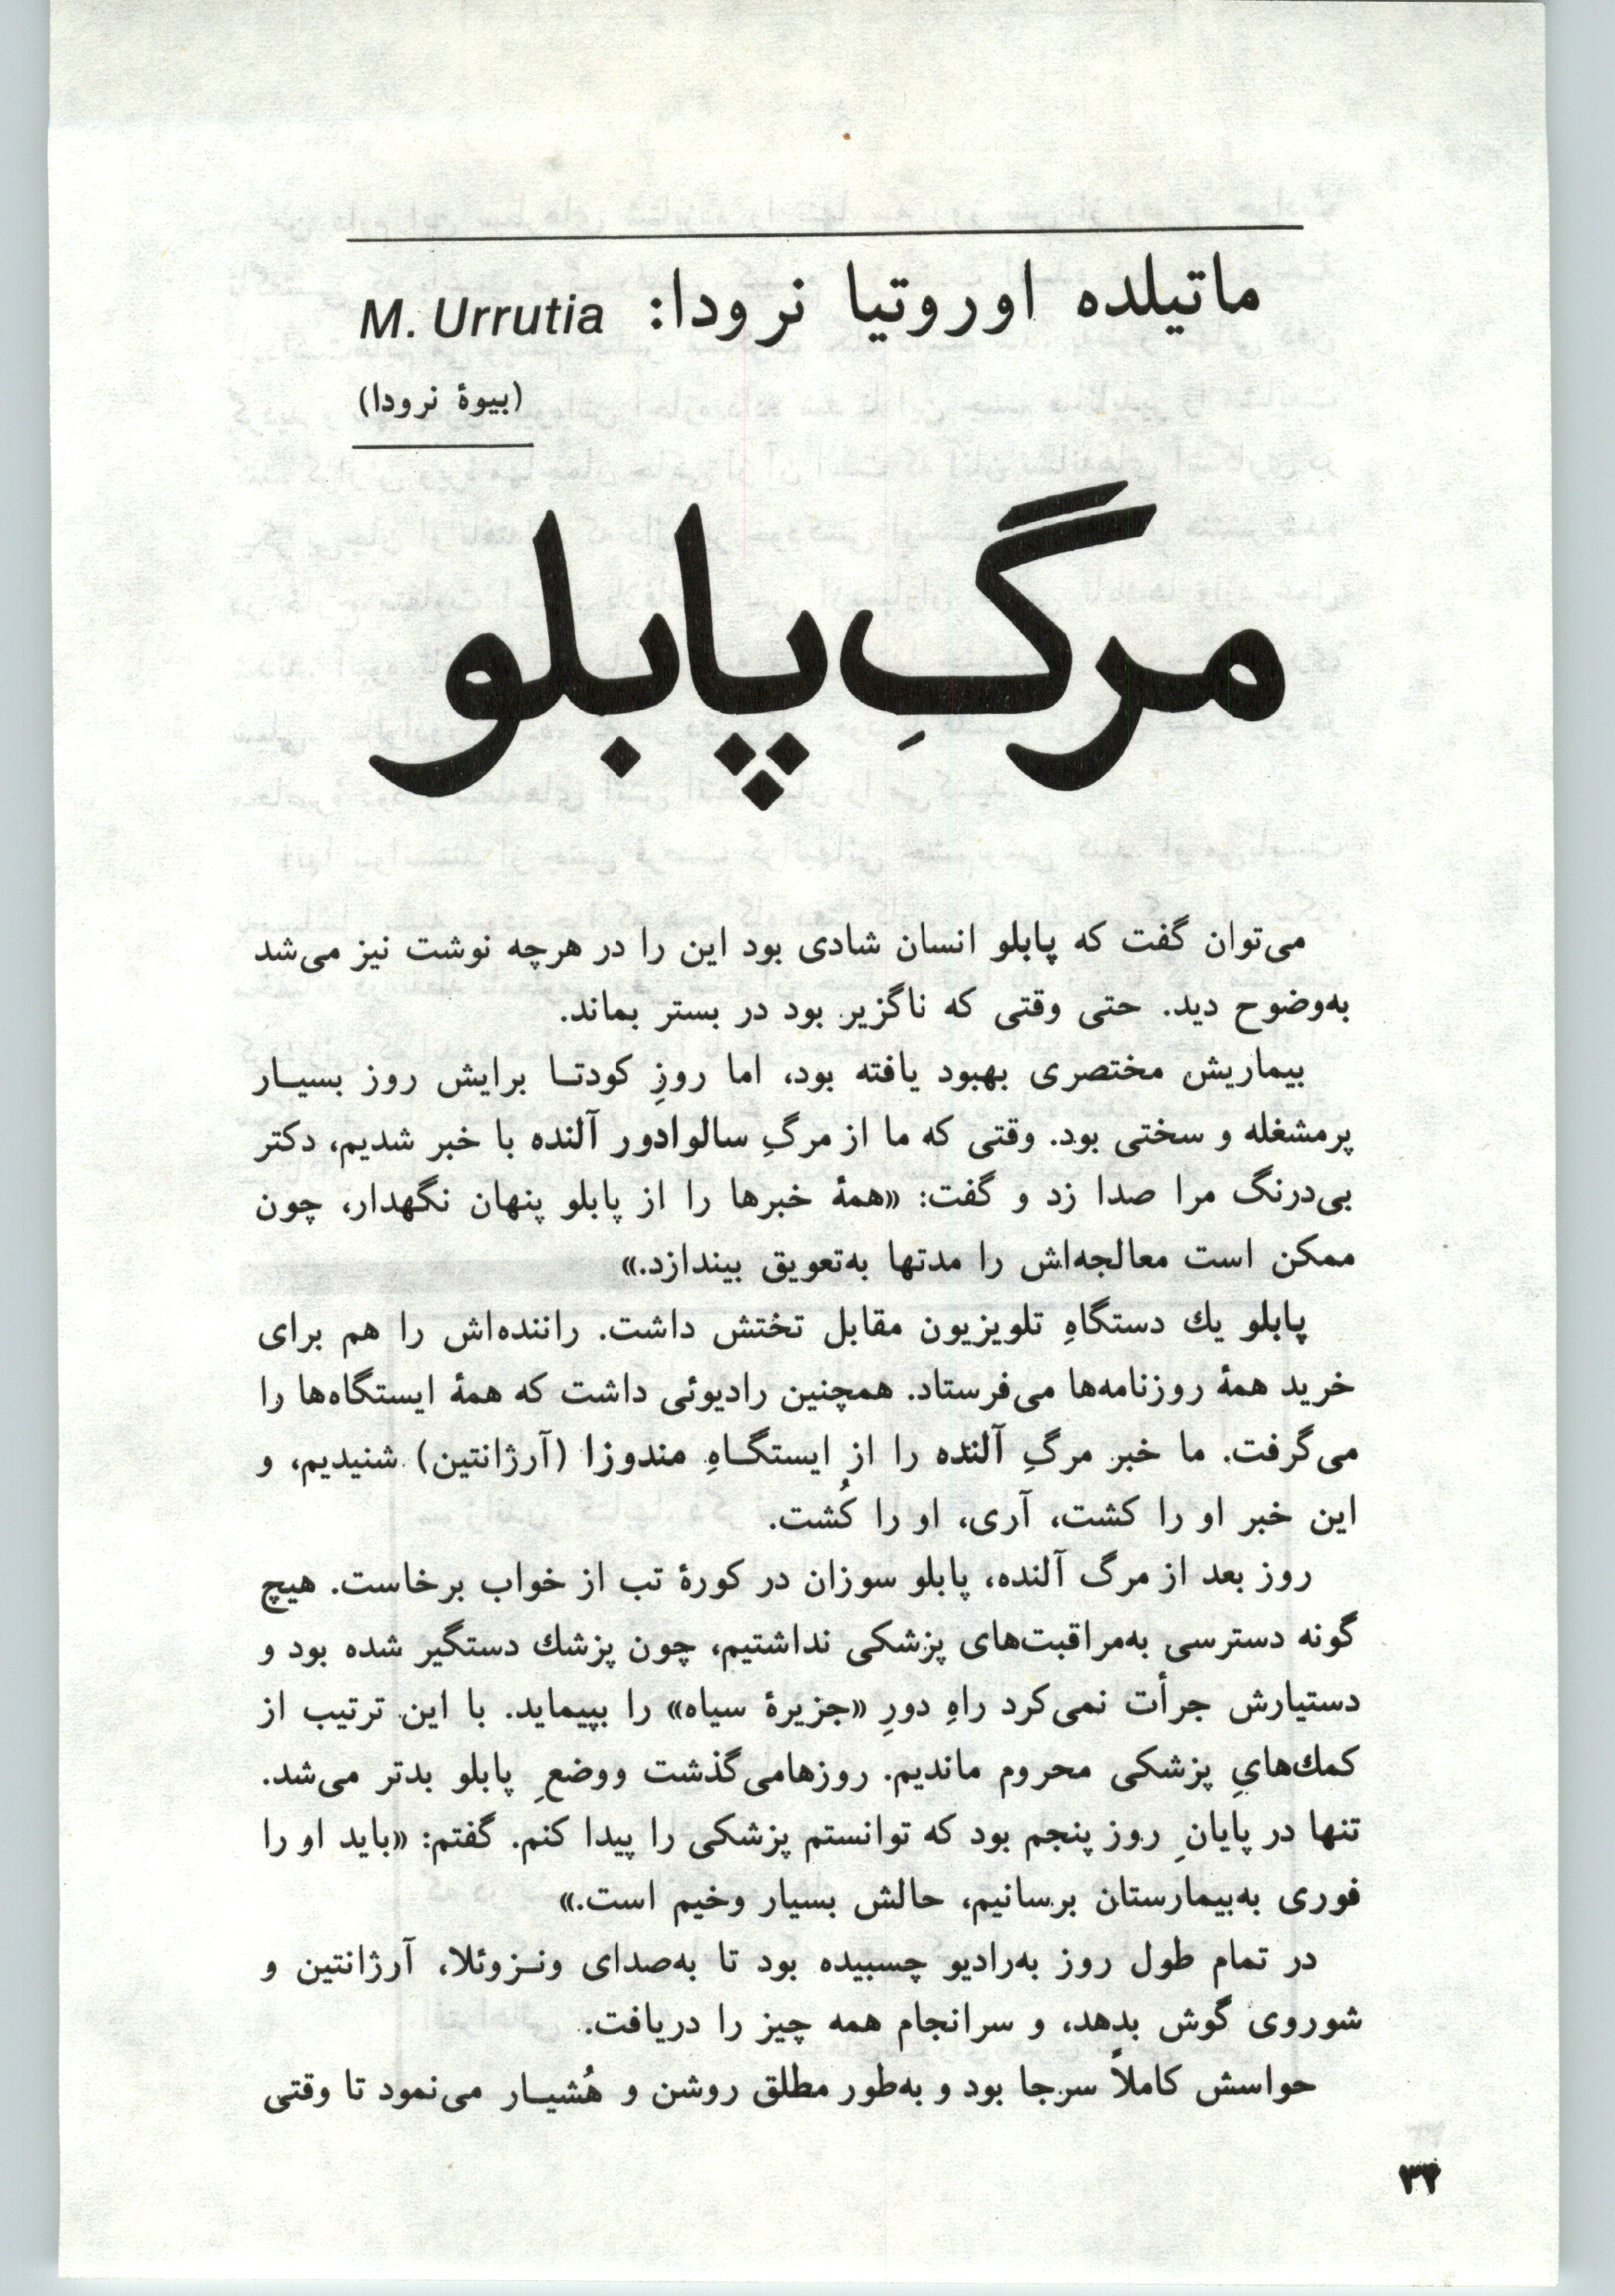 ماتیلده اوروتیا نرودا: M. Urrutia
(بیوهٔ نرودا)
مرگِ پابلو
می‌توان گفت که پابلو انسان شادی بود این را در هرچه نوشت نیز می‌شد
به‌وضوح دید. حتی وقتی که ناگزیر بود در بستر بماند.
بیماریش مختصری بهبود یافته بود، اما روزِ کودتـا برایش روز بسیـار
پرمشغله و سختی بود. وقتی که ما از مرگِ سالوادور آلنده با خبر شدیم، دکتر
بی‌درنگ مرا صدا زد و گفت: «همهٔ خبرها را از پابلو پنهان نگهدار، چون
ممکن است معالجه‌اش را مدتها به‌تعویق بیندازد.»
پابلو یك دستگاهِ تلویزیون مقابل تختش داشت. راننده‌اش را هم برای
خرید همهٔ روزنامه‌ها می‌فرستاد. همچنین رادیوئی داشت که همهٔ ایستگاه‌ها را
می‌گرفت. ما خبر مرگِ آلنده را از ایستگـاهِ مندوزا (آرژانتین) شنیدیم، و
این خبر او را کشت، آری، او را کُشت.
روز بعد از مرگ آلنده، پابلو سوزان در کورهٔ تب از خواب برخاست. هیچ
گونه دسترسی به‌مراقبت‌های پزشکی نداشتیم، چون پزشك دستگیر شده بود و
دستیارش جرأت نمی‌کرد راهِ دورِ «جزیرهٔ سیاه» را بپیماید. با این ترتیب از
کمك‌هایِ پزشکی محروم ماندیم. روزهامی‌گذشت ووضعِ پابلو بدتر می‌شد.
تنها در پایانِ روز پنجم بود که توانستم پزشکی را پیدا کنم. گفتم: «باید او را
فوری به‌بیمارستان برسانیم، حالش بسیار وخیم است.»
در تمام طول روز به‌رادیو چسبیده بود تا به‌صدای ونـزوئلا، آرژانتین و
شوروی گوش بدهد، و سرانجام همه چیز را دریافت.
حواسش کاملاً سرجا بود و به‌طور مطلق روشن و هُشیـار می‌نمود تا وقتی